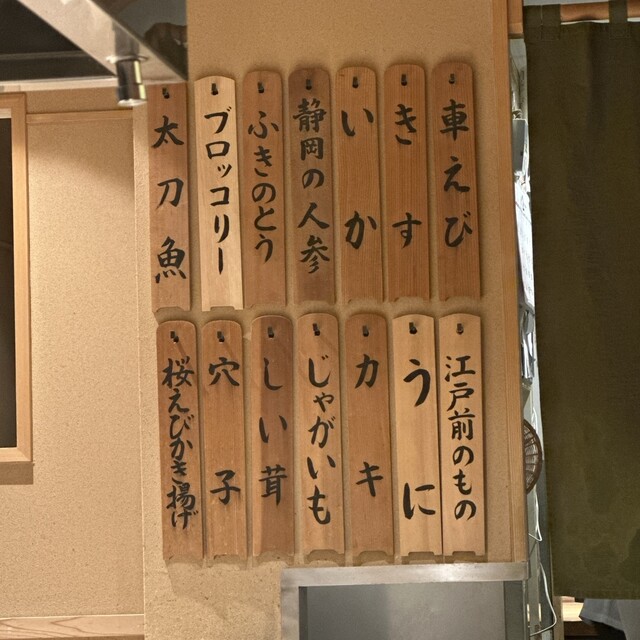 車えび
きす
いか
静岡の人参
ふきのとう
ブロッコリー
太刀魚
江戸前のもの
うに
カキ
じゃがいも
しい茸
穴子
桜えびかき揚げ